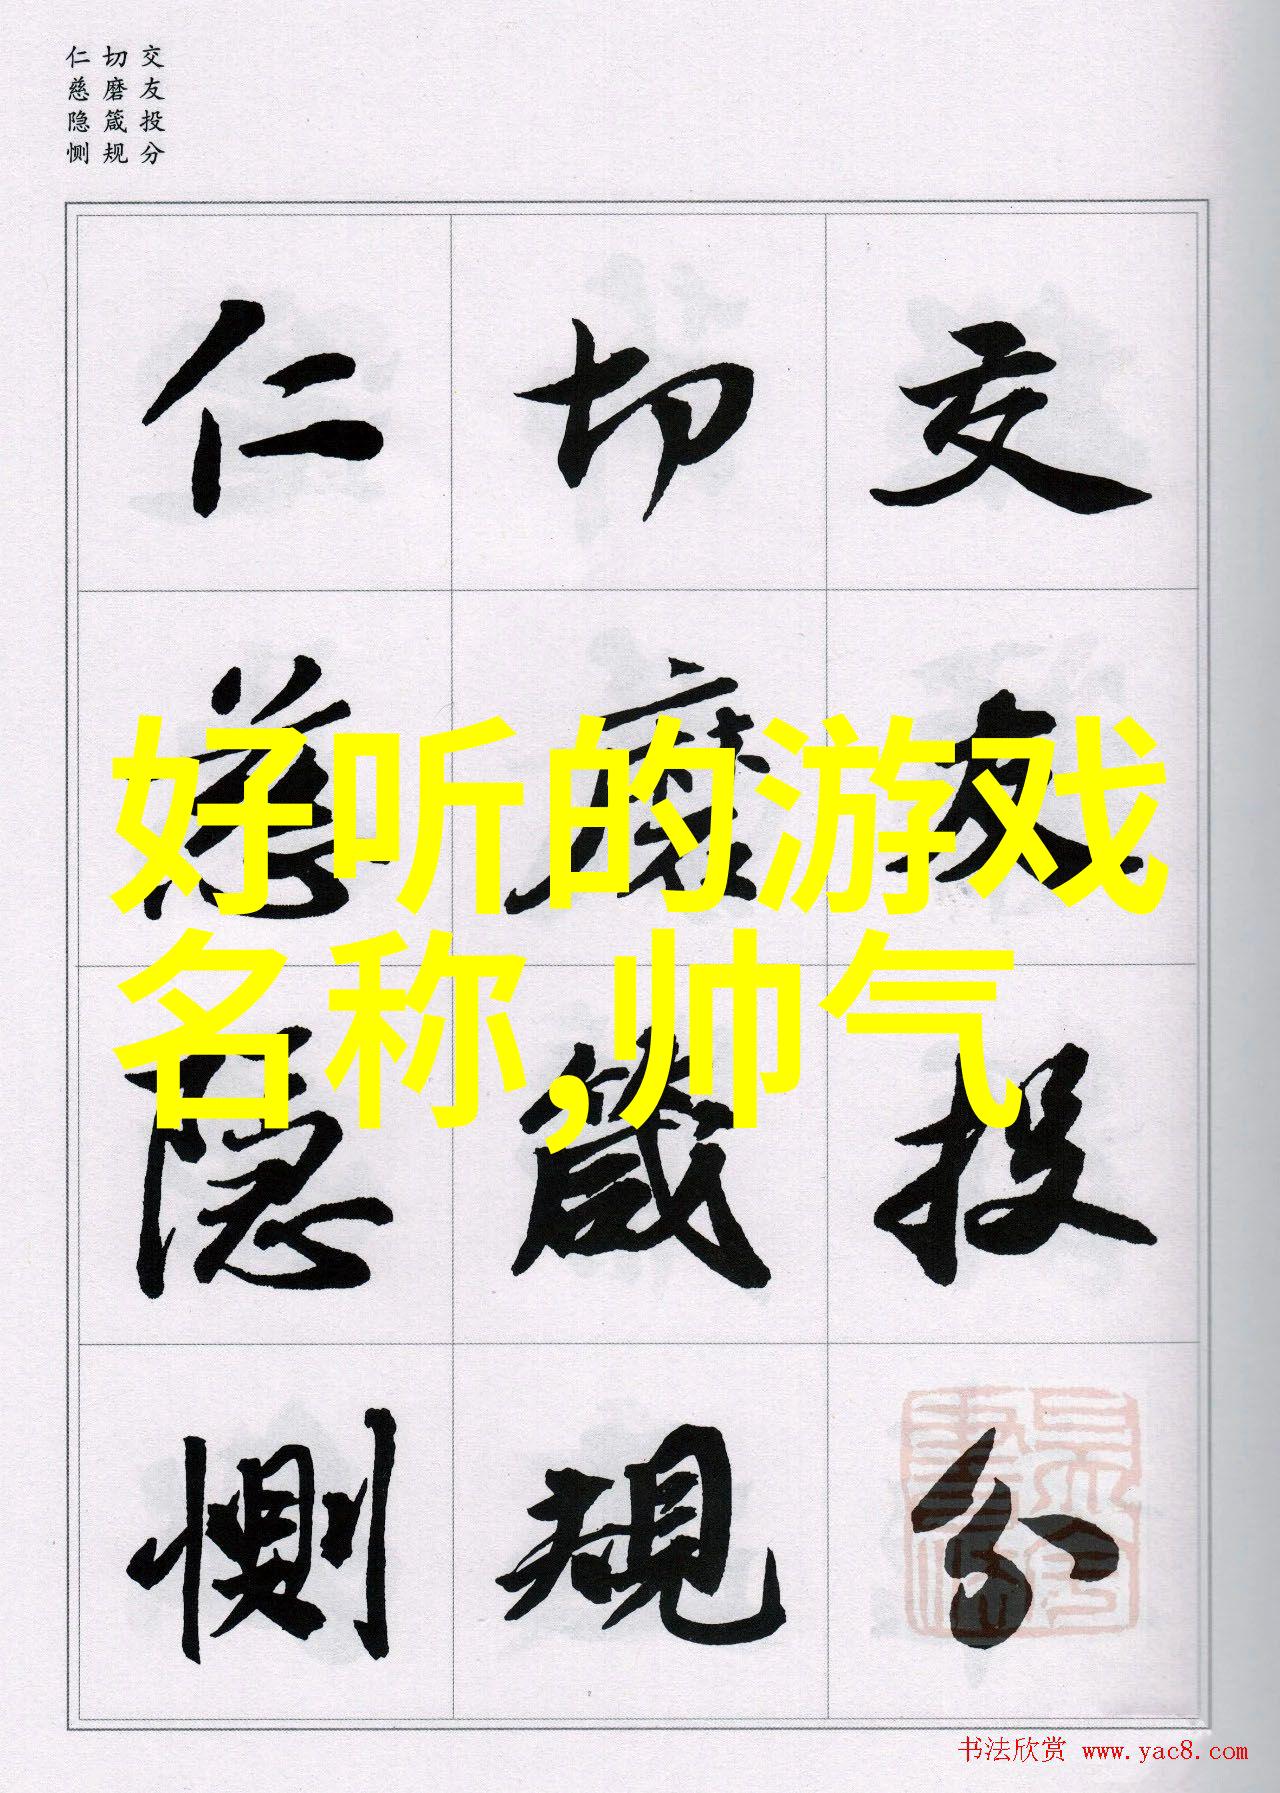 交友投分
切磨箴规
仁慈隐恻
交友投分
切磨箴規
仁慈隐恻
好听的游戏
名称,帅气
书法欣赏 www.yac8.com